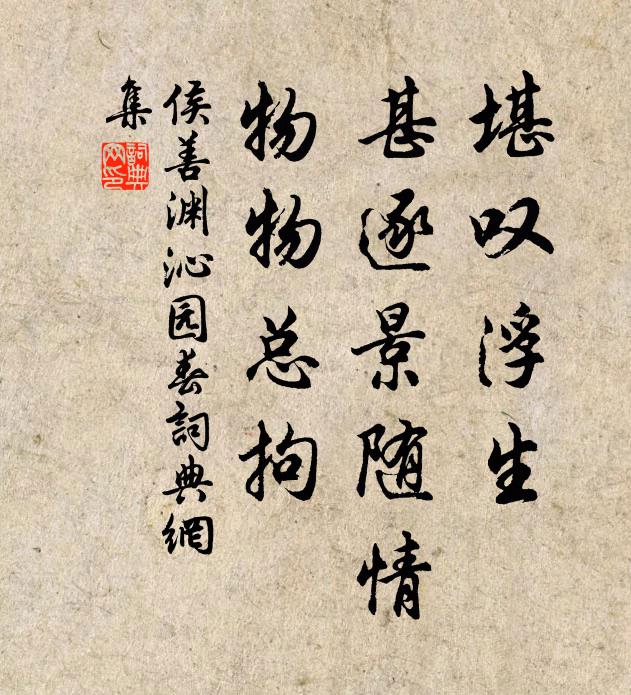 堪叹浮生
甚逐景随情
物物总拘
侯善渊沁园春詞典網
集
詞典網印